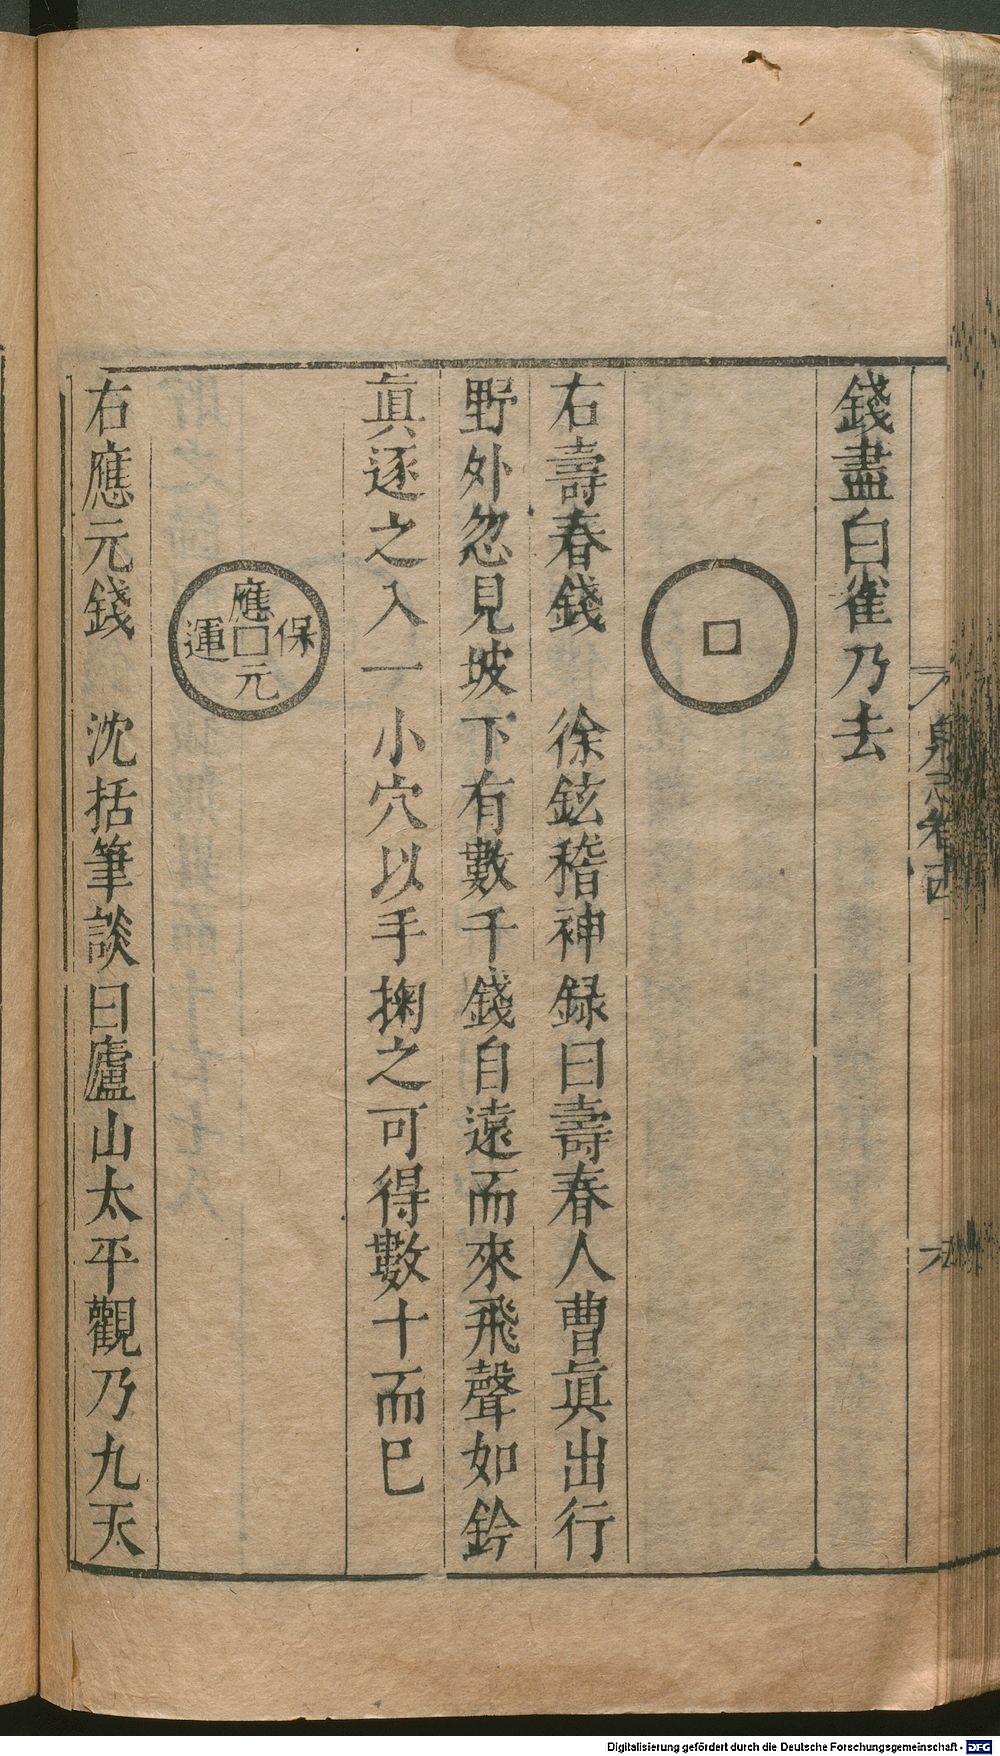 錢盡白雀乃去
右壽春錢　徐鉉稽神録曰壽春人曹眞出行
野外忽見坡下有數千錢自遠而來飛聲如鈴
眞逐之入一小穴以手掬之可得數十而巳
應元保運
右應元錢　沈括筆談曰廬山太平觀乃九天
Digitalisierung gefördert durch die Deutsche Forschungsgemeinschaft - DFG